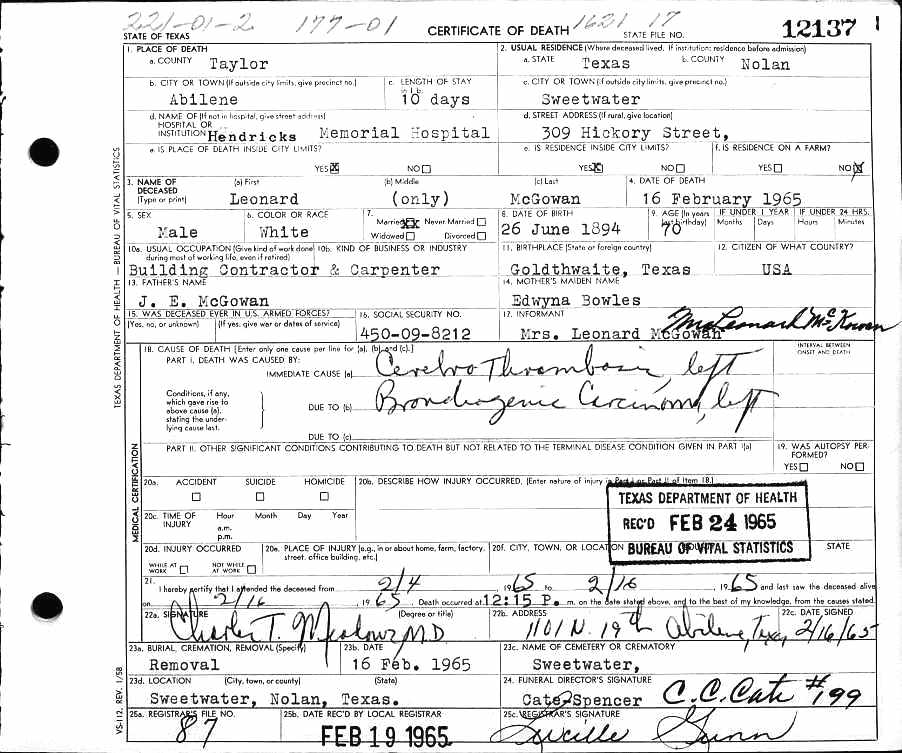 221-01-2 177-01 1621 17
STATE OF TEXAS CERTIFICATE OF DEATH STATE FILE NO. 12137 1
1. PLACE OF DEATH 2. USUAL RESIDENCE (Where deceased lived. If institution: residence before admission)
a. COUNTY Taylor a. STATE Texas b. COUNTY Nolan
b. CITY OR TOWN (If outside city limits, give precinct no.) c. LENGTH OF STAY in 1 b. c. CITY OR TOWN (If outside city limits, give precinct no.)
Abilene 10 days Sweetwater
d. NAME OF (If not in hospital, give street address) HOSPITAL OR INSTITUTION d. STREET ADDRESS (If rural, give location)
Hendricks Memorial Hospital 309 Hickory Street,
e. IS PLACE OF DEATH INSIDE CITY LIMITS? e. IS RESIDENCE INSIDE CITY LIMITS? f. IS RESIDENCE ON A FARM?
YES☒ NO☐ YES☒ NO☐ YES☐ NO☒
3. NAME OF DECEASED (Type or print) (a) First (b) Middle (c) Last 4. DATE OF DEATH
Leonard (only) McGowan 16 February 1965
5. SEX 6. COLOR OR RACE 7. Married XX Never Married ☐ Widowed ☐ Divorced ☐ 8. DATE OF BIRTH 9. AGE (In years last birthday) IF UNDER 1 YEAR Months Days IF UNDER 24 HRS. Hours Minutes
Male White 26 June 1894 70
10a. USUAL OCCUPATION (Give kind of work done during most of working life, even if retired) 10b. KIND OF BUSINESS OR INDUSTRY 11. BIRTHPLACE (State or foreign country) 12. CITIZEN OF WHAT COUNTRY?
Building Contractor & Carpenter Goldthwaite, Texas USA
13. FATHER'S NAME 14. MOTHER'S MAIDEN NAME
J. E. McGowan Edwyna Bowles
15. WAS DECEASED EVER IN U.S. ARMED FORCES? (Yes, no, or unknown) (If yes, give war or dates of service) 16. SOCIAL SECURITY NO. 17. INFORMANT
450-09-8212 Mrs. Leonard McGowan Mrs Leonard McGowan
18. CAUSE OF DEATH [Enter only one cause per line for (a), (b), and (c).] INTERVAL BETWEEN ONSET AND DEATH
PART I. DEATH WAS CAUSED BY:
IMMEDIATE CAUSE (a) Cerebro Thrombosis, left
Conditions, if any, which gave rise to above cause (a), stating the underlying cause last.
DUE TO (b) Bronchogenic Carcinoma, left
DUE TO (c)
PART II. OTHER SIGNIFICANT CONDITIONS CONTRIBUTING TO DEATH BUT NOT RELATED TO THE TERMINAL DISEASE CONDITION GIVEN IN PART I(a) 19. WAS AUTOPSY PERFORMED? YES☐ NO☐
20a. ACCIDENT ☐ SUICIDE ☐ HOMICIDE ☐ 20b. DESCRIBE HOW INJURY OCCURRED. (Enter nature of injury in Part I or Part II of Item 18.)
TEXAS DEPARTMENT OF HEALTH
REC'D FEB 24 1965
BUREAU OF VITAL STATISTICS
20c. TIME OF INJURY Hour Month Day Year a.m. p.m.
20d. INJURY OCCURRED WHILE AT WORK ☐ NOT WHILE AT WORK ☐ 20e. PLACE OF INJURY (e.g., in or about home, farm, factory, street, office building, etc.) 20f. CITY, TOWN, OR LOCATION STATE
21. I hereby certify that I attended the deceased from 2/4 1965 to 2/16 1965 and last saw the deceased alive
on 2/16 1965. Death occurred at 12:15 P. m. on the date stated above, and to the best of my knowledge, from the causes stated.
22a. SIGNATURE (Degree or title) 22b. ADDRESS 22c. DATE SIGNED
Charles T. Meadows M D 1101 N. 19th Abilene, Tex 2/16/65
23a. BURIAL, CREMATION, REMOVAL (Specify) 23b. DATE 23c. NAME OF CEMETERY OR CREMATORY
Removal 16 Feb. 1965 Sweetwater,
23d. LOCATION (City, town, or county) (State) 24. FUNERAL DIRECTOR'S SIGNATURE
Sweetwater, Nolan, Texas. Cate-Spencer C.C. Cate #199
25a. REGISTRAR'S FILE NO. 25b. DATE REC'D BY LOCAL REGISTRAR 25c. REGISTRAR'S SIGNATURE
87 FEB 19 1965 Lucille Gunn
TEXAS DEPARTMENT OF HEALTH — BUREAU OF VITAL STATISTICS
MEDICAL CERTIFICATION
VS-112, REV. 1/58